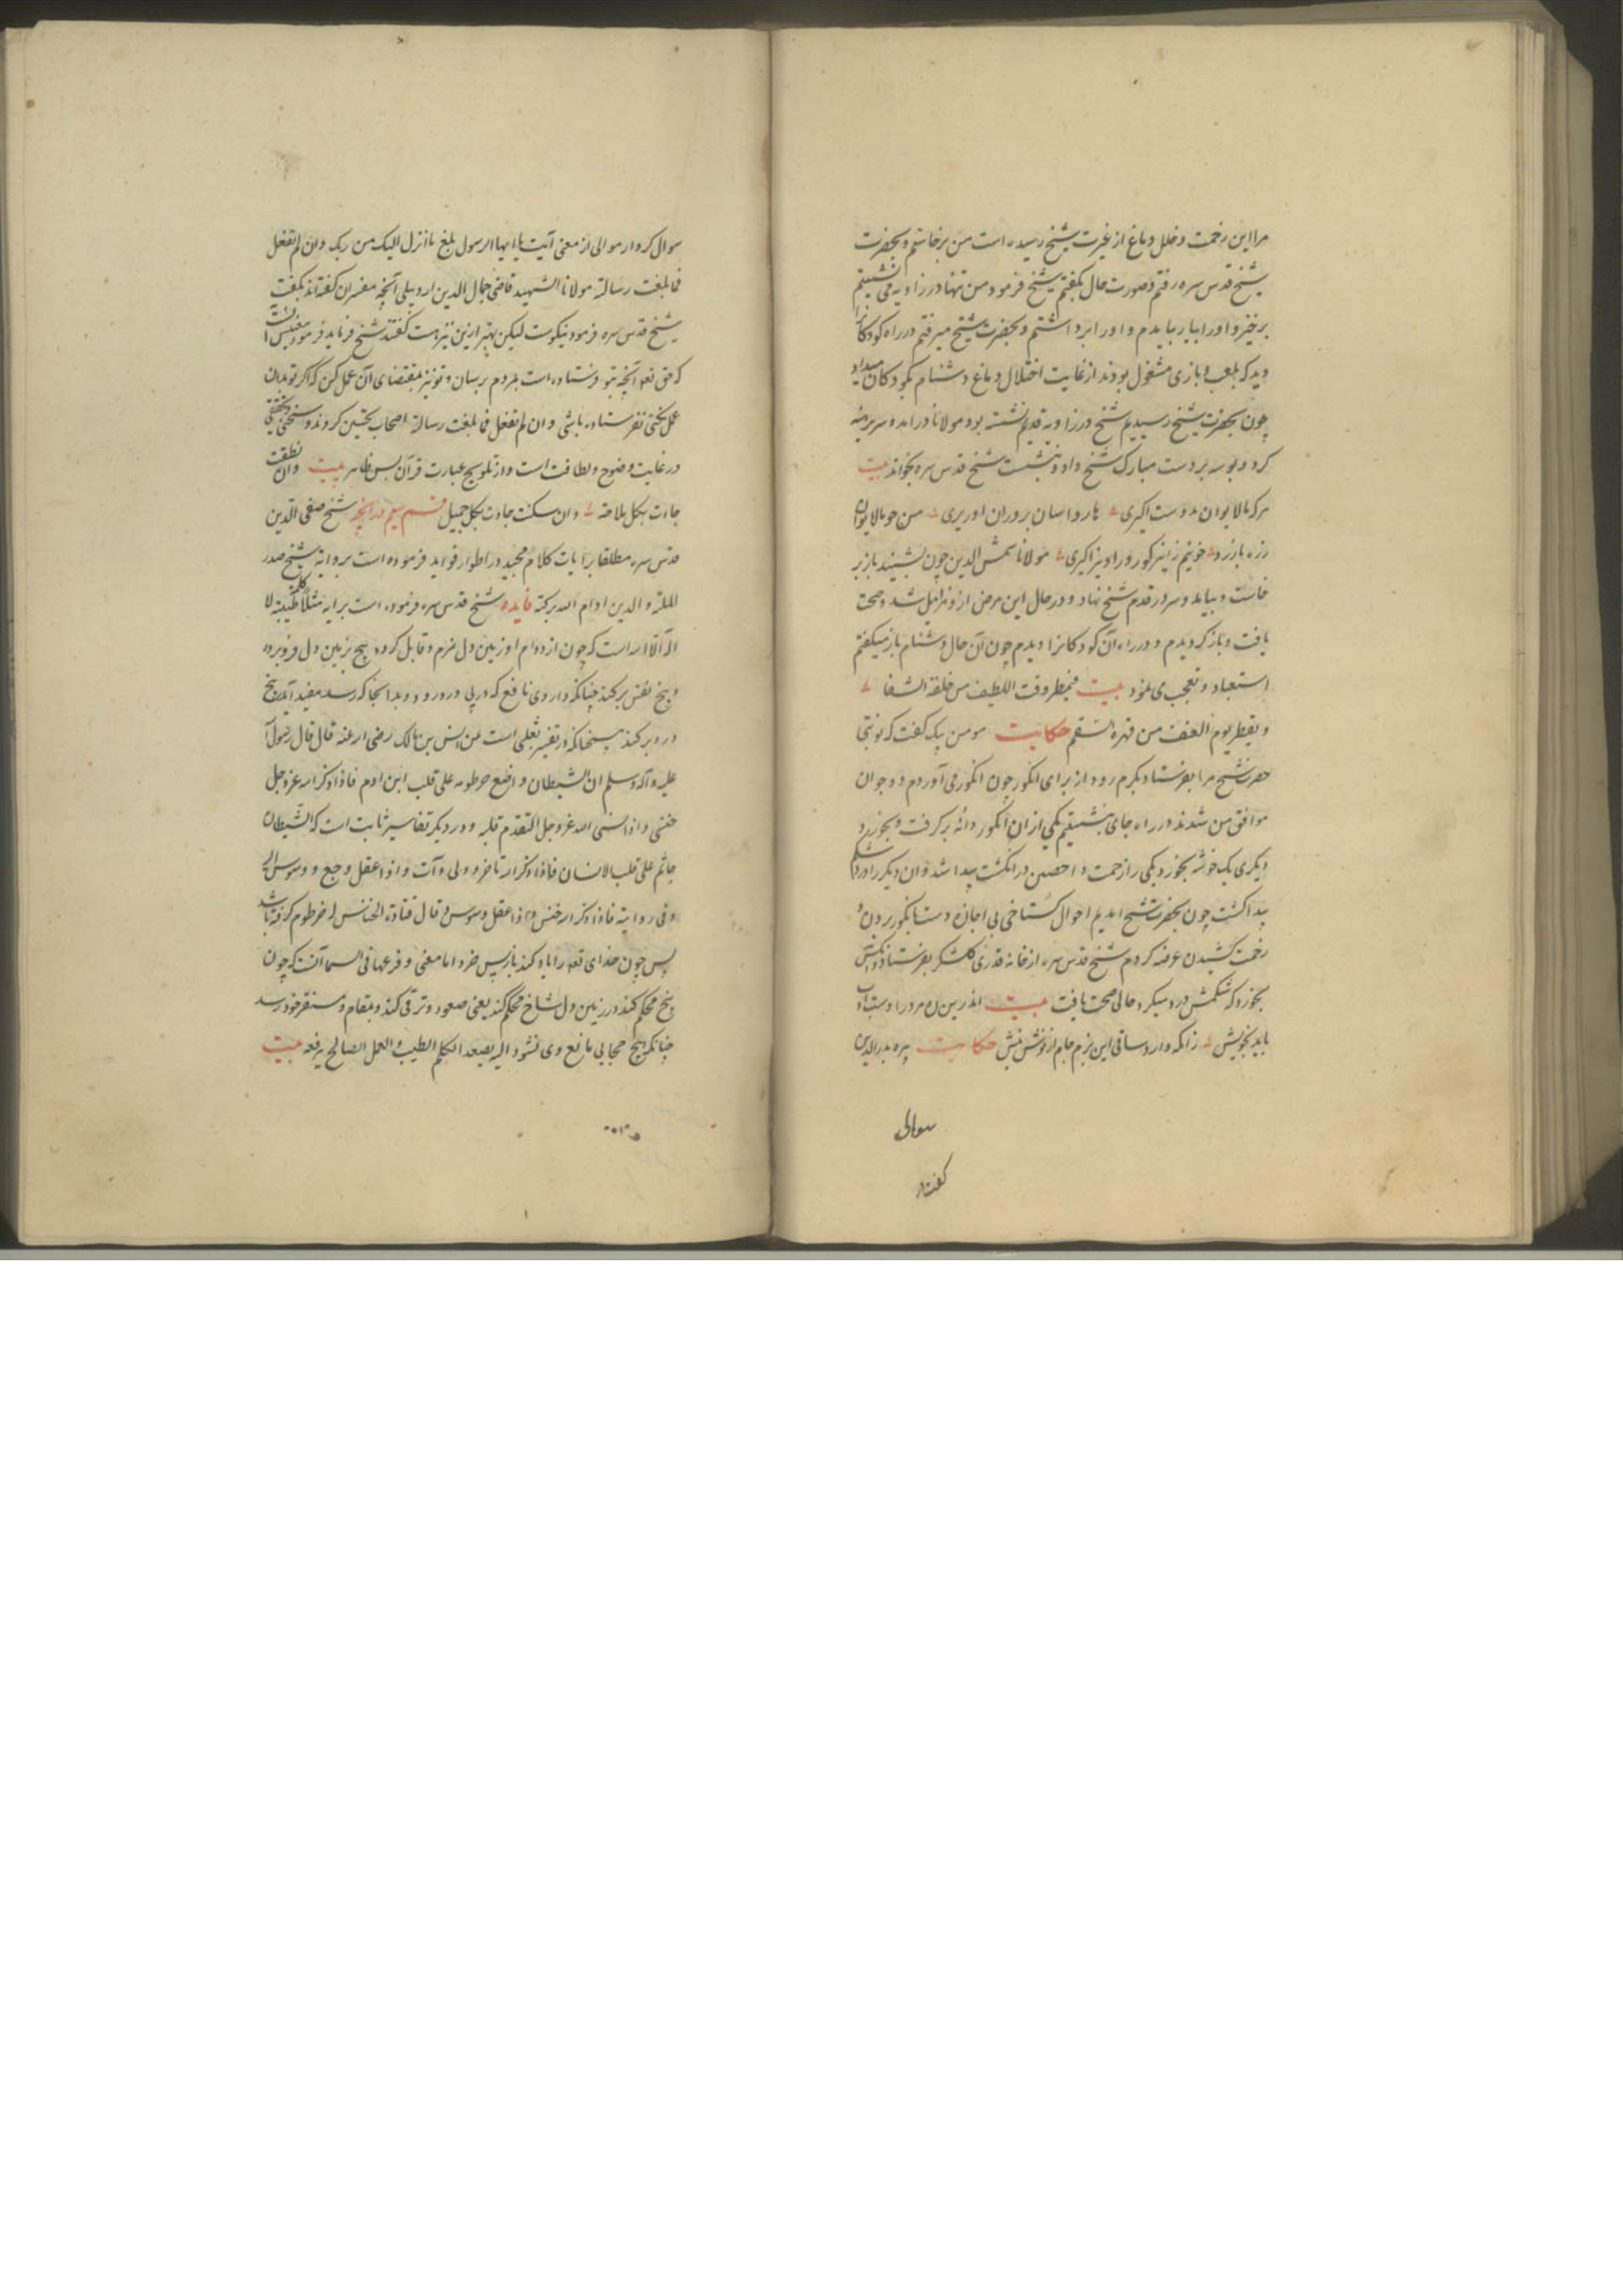 مرا این زحمت و خلل دماغ از غیرت شیخ رسیده است من برخاستم و بحضرت
شیخ قدس سره رفتم و صورت حال بگفتم شیخ فرمود من تنها در زاویه می نشینم
برخیز و او را بیار بیامدم و او را برداشتم و بحضرت شیخ میرفتم در راه کودکانرا
دید که بلعب و بازی مشغول بودند از غایت اختلال دماغ دشنام بکودکان میداد
چون بحضرت شیخ رسیدیم شیخ در زاویه قدیم نشسته بود مولانا در آمد و سر برهنه
کرد و بوسه بر دست مبارک شیخ داد و بنشست شیخ قدس سره بخواند بیت
هرکه بالایوان
مولانا شمس الدین چون بشنید باز بر
خاست و بیامد و سر در قدم شیخ نهاد و در حال این مرض ازو زایل شد و صحت
یافت و باز گردیدم و در راه آن کودکانرا دیدم چون آن حال دشنام باز میگفتم
استبعاد و تعجب می نمود بیت فیمطر وقت اللطف من خلقه الشفا
و یقطر یوم العنف من قهره السقم حکایت مومن بیک گفت که نوبتی
حضرت شیخ مرا بفرستاد بکرم رود از برای انگور چون انگور می آوردم دو جوان
موافق من شدند در راه جای بنشستیم یکی از آن انگور دانه بر گرفت و بخورد و
دیگری یک خوشه بخورد یکی را زحمت داحس در انگشت پیدا شد و آن دیگر را درد شکم
پیدا گشت چون بحضرت شیخ آمدیم احوال گستاخی بی اجازه دست بانگور بردن و
زحمت کشیدن عرضه کردم شیخ قدس سره از خانه قدری گلشکر بفرستاد و آنکش
بخورد که شکمش درد میکرد حالی صحت یافت بیت اندرین ره مرد را دست ادب
باید بخویش زانکه دارد ساقی این بزم جام از نوش و نیش حکایت پیره بدرالدین
سوالی
سوال کرد از موالی از معنی آیت یا ایها الرسول بلغ ما انزل الیک من ربک و ان لم تفعل
فما بلغت رسالته مولانا الشهید قاضی جمال الدین اردبیلی آنچه مفسران گفته اند بگفت
شیخ قدس سره فرمود نیکوست لیکن بهتر ازین نیز هست گفتند شیخ فرماید فرمود معنیش آنست
که حق تعه آنچه بتو فرستاده است بمردم برسان و تو نیز بمقتضای آن عمل کن که اگر تو بدان
عمل نکنی نفرستاده باشی و ان لم تفعل فما بلغت رسالته اصحاب تحسین کردند و سخنی تحقیقی
در غایت وضوح و لطافت است و از تلویح عبارت قرآن بس ظاهر بیت و ان نطقت
جاءت بکل ملاحة و ان سکتت جاءت بکل جمیل قسم سیم در آنچه شیخ صفی الدین
قدس سره مطلقا بر آیات کلام مجید در اطوار فواید فرموده است بروایة شیخ صدر
الملة و الدین ادام الله برکته فایده شیخ قدس سره فرموده است بر آیه مثلا کلمة طیبة لا
اله الا الله است که چون از دوام او زمین دل نرم و قابل گردد بیخ بزمین دل فرو برد
و بیخ نفس برکند چنانکه داروی نافع که در پی درد رود و بدانجا که رسد مفید آید و بیخ
درد برکند همچنانکه در تفسیر ثعلبی است عن انس بن مالک رضی الله عنه قال قال رسول الله
علیه و آله و سلم ان الشیطان واضع خرطومه علی قلب ابن آدم فاذا ذکر الله عز و جل
خنس و اذا نسی الله عز و جل التقم قلبه و در دیگر تفاسیر ثابت است که الشیطان
جاثم علی قلب الانسان فاذا ذکر الله تاخر و ولی و اذا غفل رجع و وسوس الیه
و فی روایة فاذا ذکر الله خنس و اذا غفل وسوس و قال قتادة الخناس له خرطوم
پس چون خدای تعه را یاد کند باز پس خزد اما معنی و فرعها فی السما آنست که چون
بیخ محکم کند در زمین دل شاخ محکم کند یعنی صعود و ترقی کند و بمقام و مستقر خود رسد
چنانکه هیچ حجابی مانع وی نشود الیه یصعد الکلم الطیب و العمل الصالح یرفعه بیت